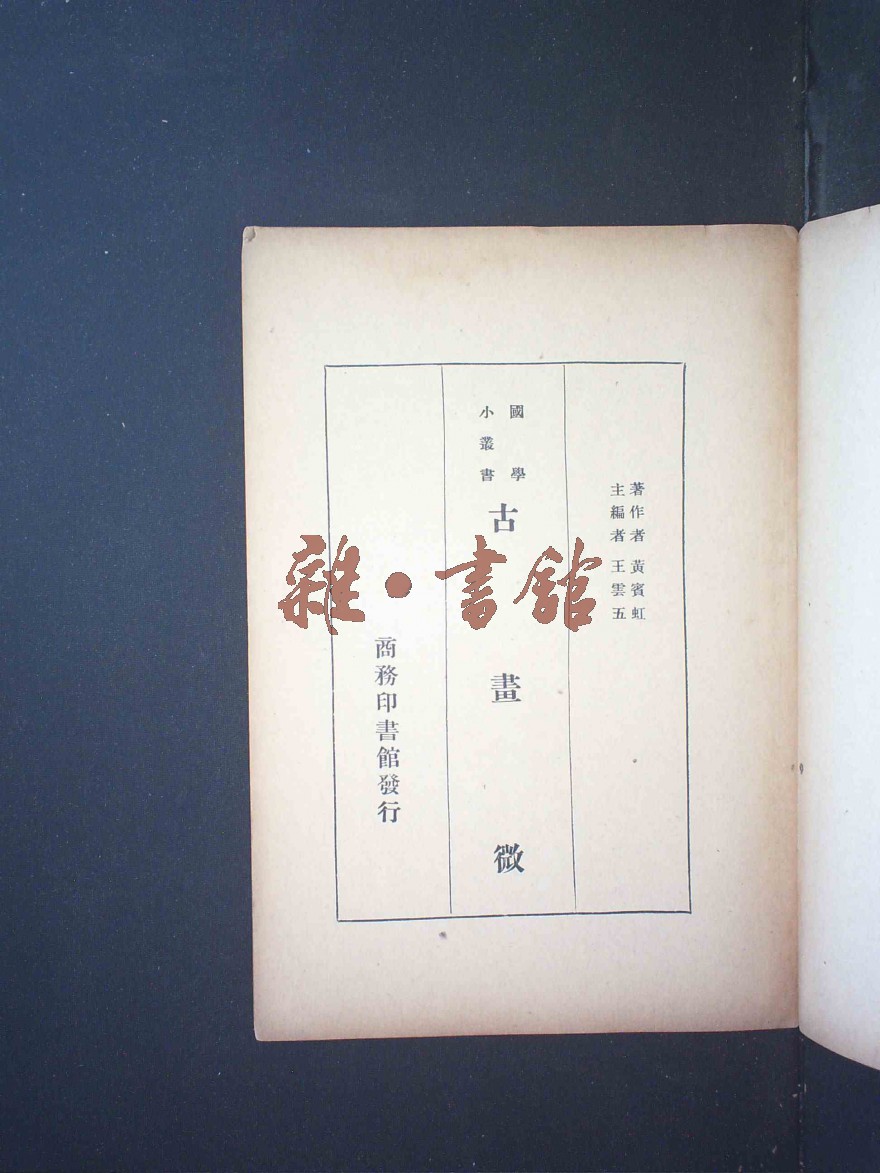 著作者 黃賓虹
主編者 王雲五
國學
小叢書
古畫微
商務印書館發行
雜·書館